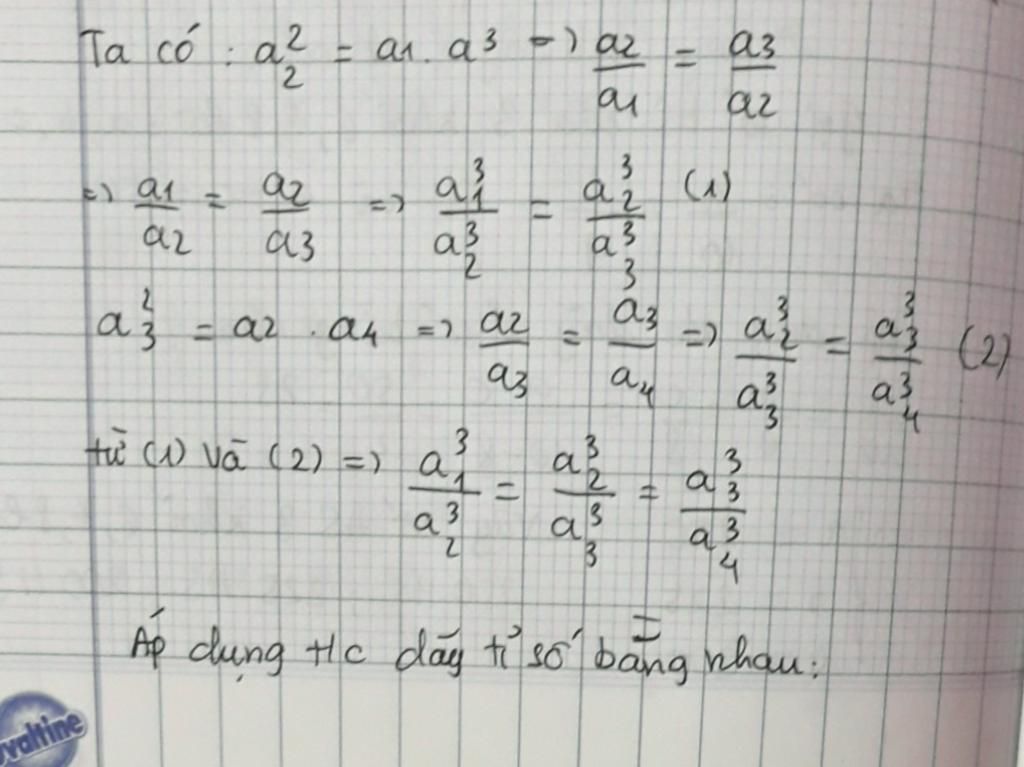 Ta có : a₂² = a1 . a³ => a2/a1 = a3/a2
=> a1/a2 = a2/a3 => a₁³/a₂³ = a₂³/a₃³ (1)
a₃² = a2 . a4 => a2/a3 = a3/a4 => a₂³/a₃³ = a₃³/a₄³ (2)
từ (1) và (2) => a₁³/a₂³ = a₂³/a₃³ = a₃³/a₄³
Áp dụng t/c dãy tỉ số bằng nhau:
valtine